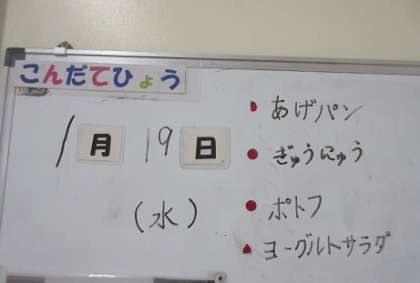 こんだてひょう
1月19日
(水)
あげパン
ぎゅうにゅう
ポトフ
ヨーグルトサラダ